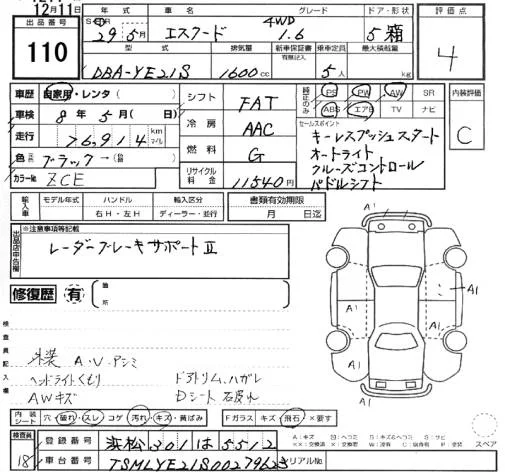 12月11日
出品番号 110
年式 車名 グレード ドア・形状 評価点
29年 5月 エスクード 4WD 1.6 5 箱 4
型式 排気量 新車保証書 有無記入 乗車定員 最大積載量
DBA-YE21S 1600cc 5人 kg
車歴 自家用・レンタ( ) シフト FAT 純正のみ PS PW AW SR 内装評価
ABS エアB TV ナビ C
車検 8年 5月( 日) 冷房 AAC セールスポイント
走行 76,914 km マイル キーレスプッシュスタート
オートライト
色 ブラック→( ) 燃料 G クルーズコントロール
カラーNo. ZCE リサイクル料金 11540円 パドルシフト
輸入車 モデル年式 ハンドル 右H・左H 輸入区分 ディーラー・並行 書類有効期限 月 日迄
出品店申告欄 ※注意事項等記載
レーダーブレーキサポートⅡ
修復歴 有 箇所
A1
A1
A1
A1
A1
A1
検査員記入欄
外装 A.U.アンミ
ヘッドライトくもり ドアトリム、ハガレ
AWキズ Dシート石皮れ
内装シート 穴 破れ・スレ コゲ 汚れ・キズ・黄ばみ Fガラス キズ・飛石・×要す
スペア
検査員 18
登録番号 浜松301は5512
車台番号 TSMLYE21S00279623 シリアルNo.